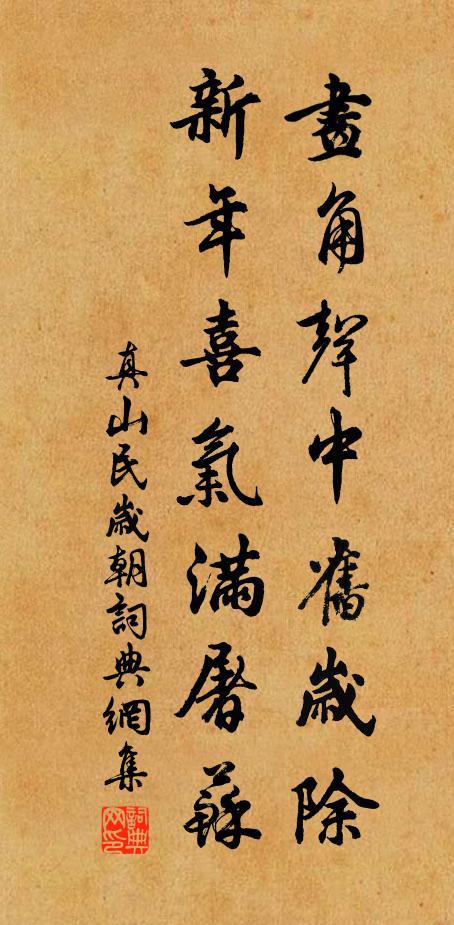 畫角聲中舊歲除
新年喜氣滿屠蘇
真山民歲朝詞典網集
詞典網印